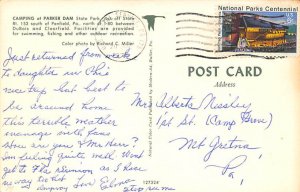 CAMPING at PARKER DAM State Park, just off State
Rt. 153 south of Penfield, Pa. on I-80 between
DuBois and Clearfield. Facilities are provided
for swimming, fishing and other outdoor recreation.
Color photo by Richard C. Miller
National Parks Centennial
POST CARD
Address
Just returned from week
to daughter in Ohio
nice trip but best to
be around home
this terrible weather
manage with fans
How are you & Mr Herr?
Am feeling quite well. Wont
get to Fla reunion as I have
no way to
anyway Love Edna
Mrs Alberta Nissley
1st St. (Camp Grove)
Mt Gretna
Pa